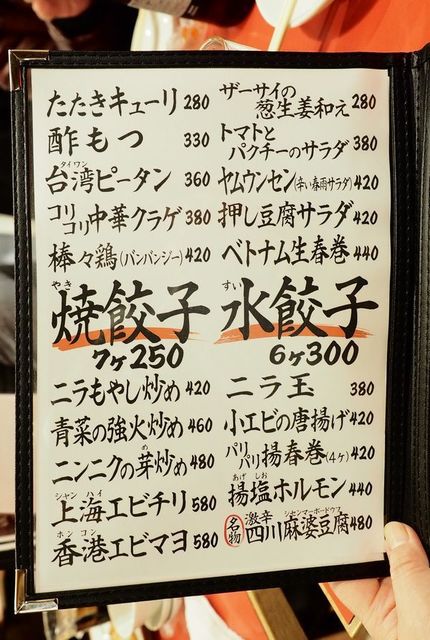 たたきキューリ 280
酢もつ 330
タイワン
台湾ピータン 360
コリコリ中華クラゲ 380
棒々鶏(バンバンジー) 420
ザーサイの
葱生姜和え 280
トマトと
パクチーのサラダ 380
ヤムウンセン(辛い春雨サラダ) 420
押し豆腐サラダ 420
ベトナム生春巻 440
やき
焼餃子
7ヶ250
すい
水餃子
6ヶ300
ニラもやし炒め 420
青菜の強火炒め 460
め
ニンニクの芽炒め 480
シャン ハイ
上海エビチリ 580
ホン コン
香港エビマヨ 580
ニラ玉 380
小エビの唐揚げ 420
パリパリ揚春巻(4ヶ) 420
あげ しお
揚塩ホルモン 440
名物
激辛
シセンマーボードウフ
四川麻婆豆腐 480